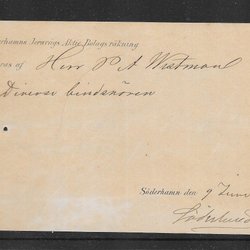 derhamns Jernvägs Aktie Bolags räkning
eras af Herr P A Westman
Diverse bindsnören
Söderhamn den 9 Juni